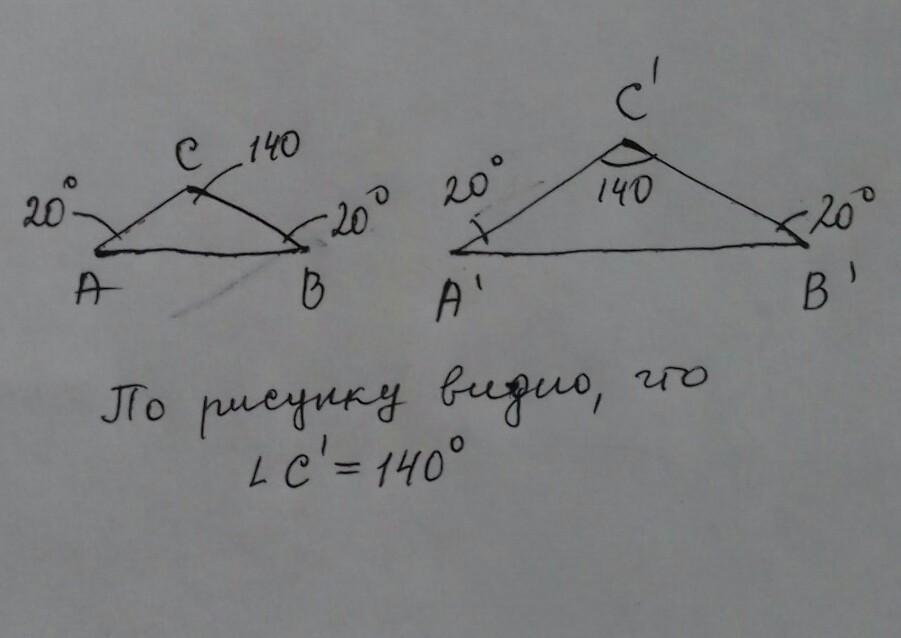 C 140 20° 20° A B
C' 20° 140 20° A' B'
По рисунку видно, что
∟ C' = 140°